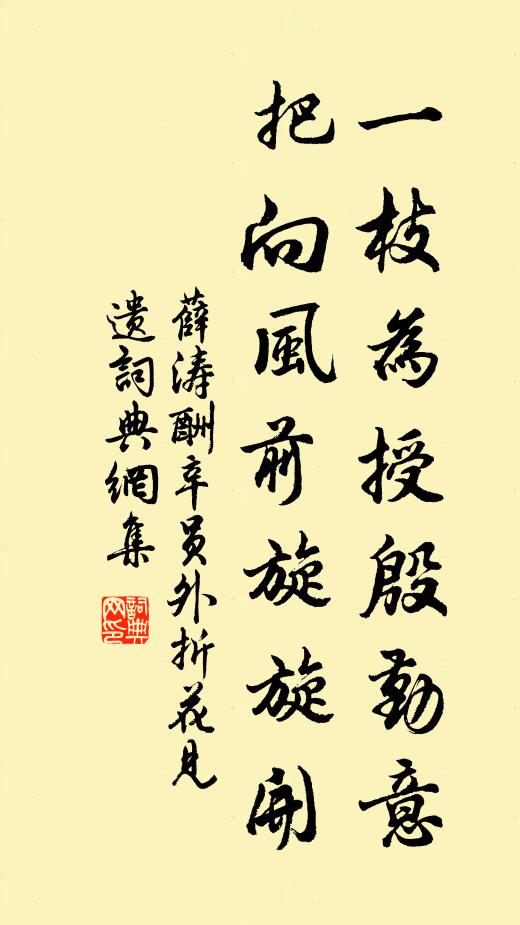 一枝為授殷勤意
把向風前旋旋開
薛濤酬辛員外折花見
遺詞典網集
詞典网印